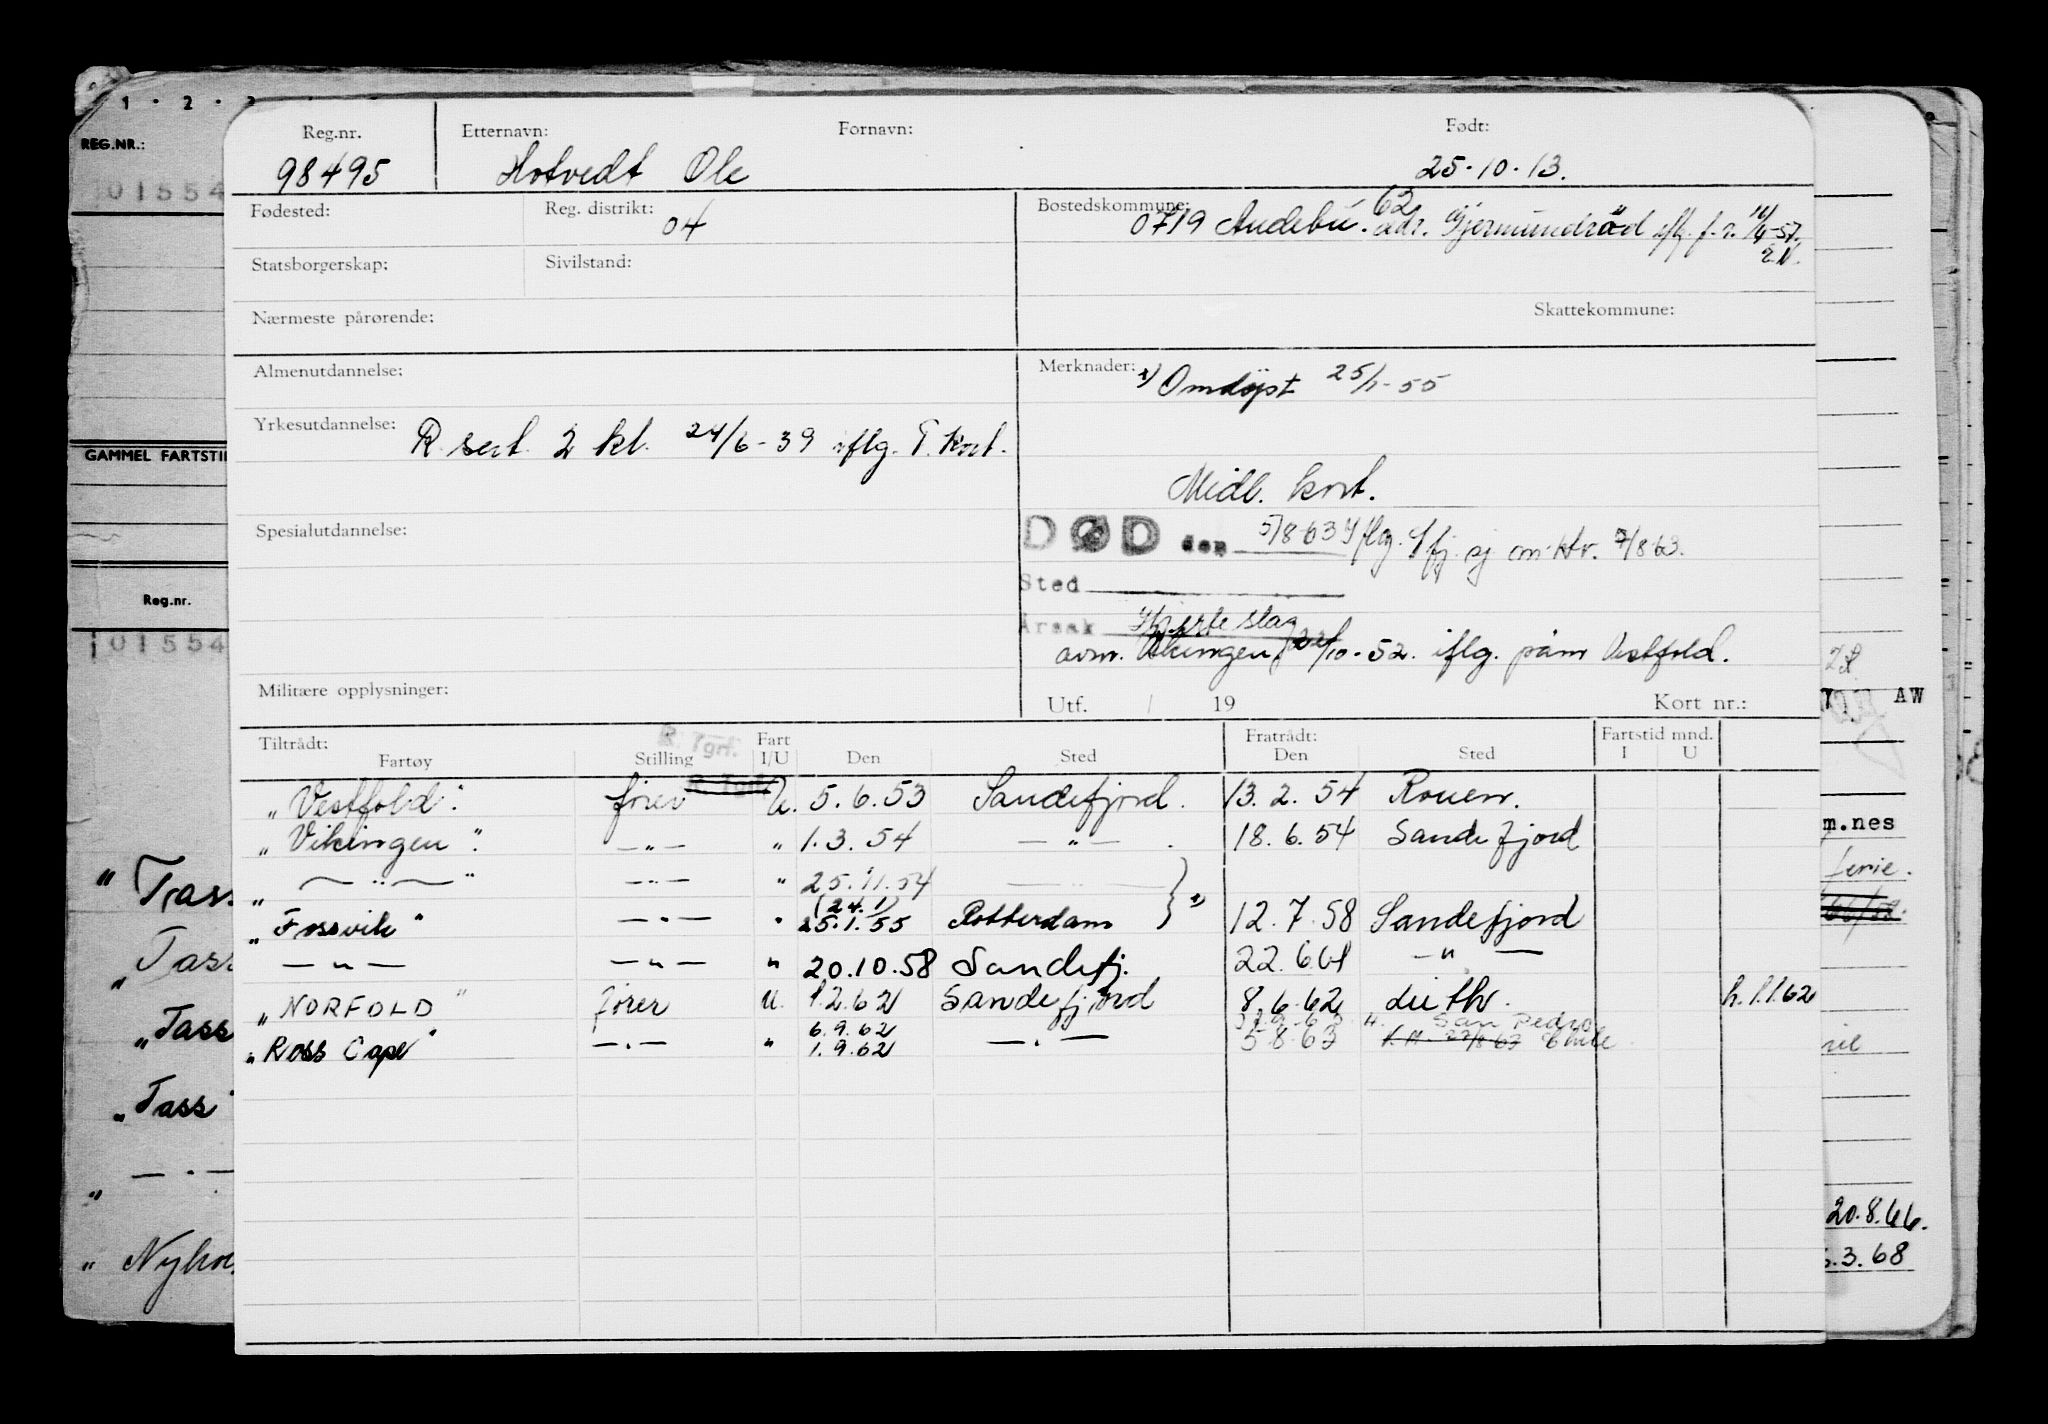 1 · 2 ·
REG.NR.:
01554
GAMMEL FARTSTI
Reg.nr.
01554
Reg.nr. Etternavn: Fornavn: Født:
98495 Hotvedt Ole 25-10-13.
Fødested: Reg. distrikt: 04 Bostedskommune: 62
0719 Andebu. adr. Gjermundrød iflg. f.r. 11/4-57.
E.N.
Statsborgerskap: Sivilstand:
Nærmeste pårørende: Skattekommune:
Almenutdannelse: Merknader: 1) Omdøpt 25/1-55
Yrkesutdannelse: R. sert. 2 kl. 24/6-39 iflg. T. kort.
Midl. kort.
Spesialutdannelse: DØD den 5/8 63 Iflg. Sfj. sj. m. ktr. 7/8 63.
Sted
Årsak Hjerteslag
avm. Vikingen 22/10-52. iflg. påm Vestfold.
Militære opplysninger: Utf. / 19 Kort nr.:
Tiltrådt: R. Tgrf. Fart Fratrådt: Fartstid mnd.
Fartøy Stilling I/U Den Sted Den Sted I U
"Vestfold". fører U. 5.6.53 Sandefjord. 13.2.54 Rouen.
"Vikingen". — " — " 1.3.54 — " — . 18.6.54 Sandefjord
" — " — " — " — " 25.11.54 — " —
(24.1)
"Fossvik" — " — " 25.1.55 Rotterdam } 1) 12.7.58 Sandefjord
— " — — " — " 20.10.58 Sandefj. 22.6.61 — " —
"NORFOLD" fører U. 1.2.62 Sandefjord 8.6.62 du thr. h. 1.1.62
6.9.62 San Pedro
"Ross Cape" — " — " 1.9.62 — " — 5.8.63 Chile
"Tass
"Tass
"Tass
"Tass"
— " —
"Nyho
AW
m.nes
ferie.
20.8.66.
.3.68